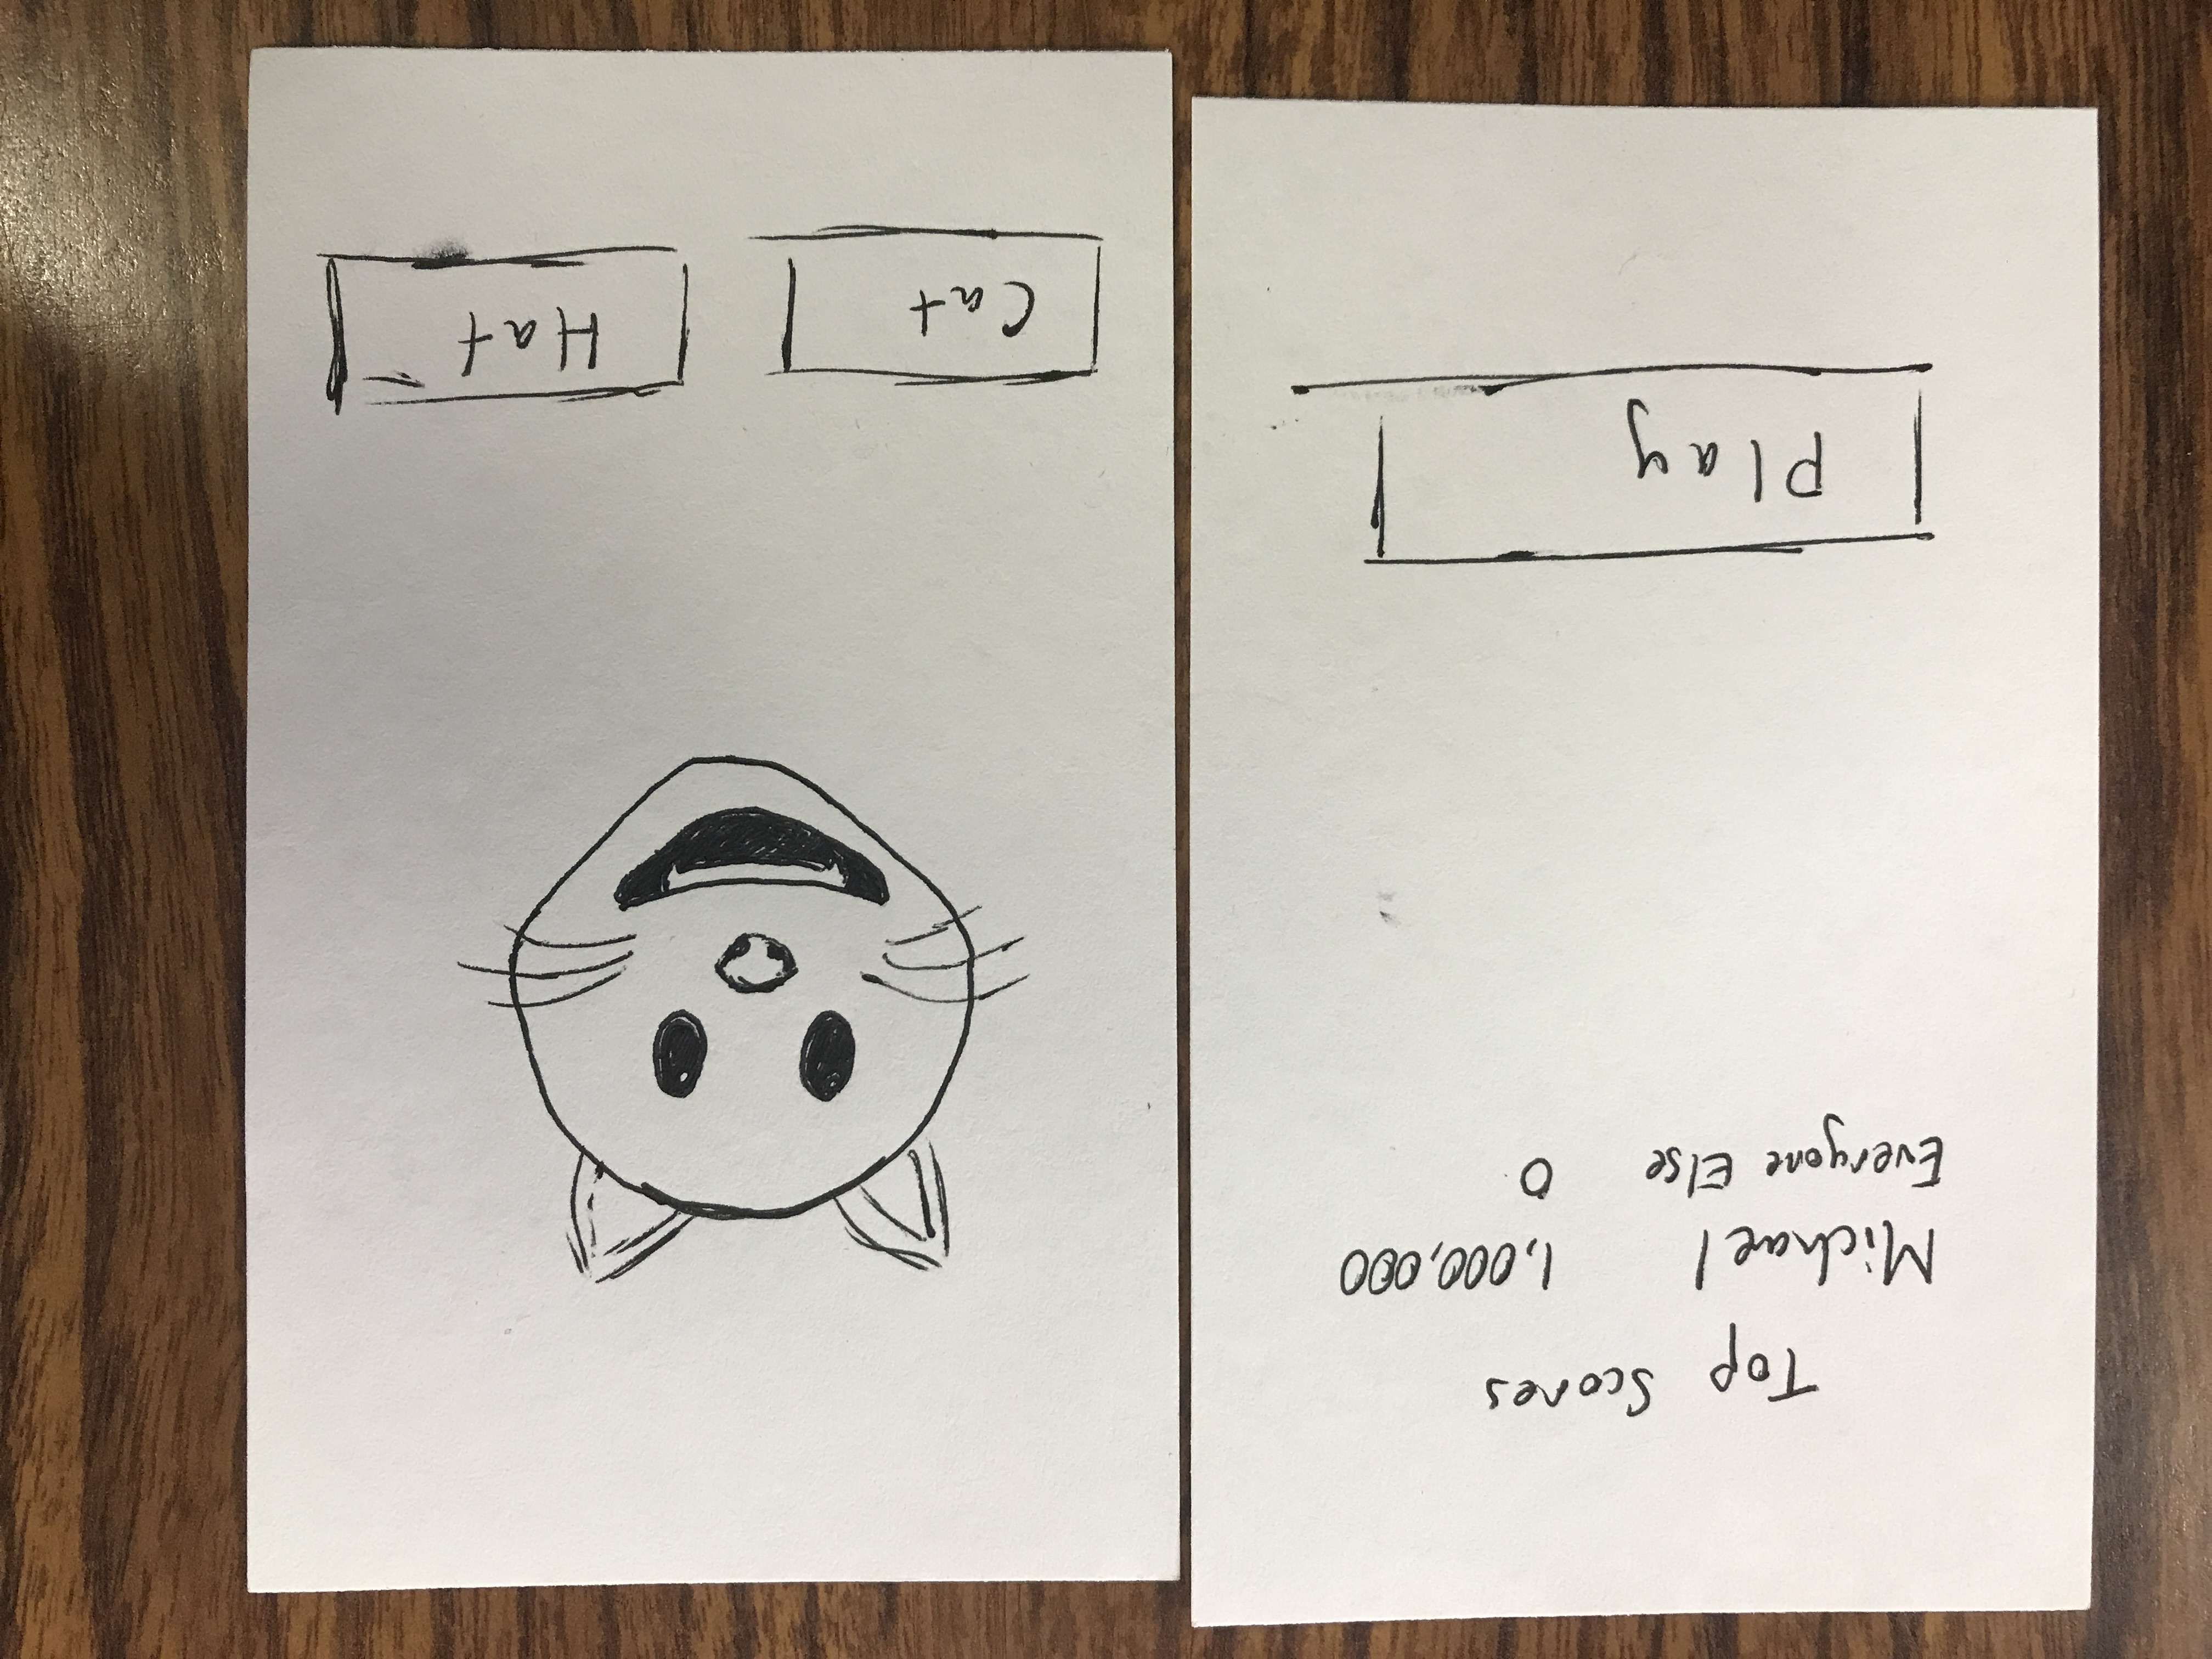 Top Scores
Michael 1,000,000
Everyone Else 0
Play
Cat
Hat